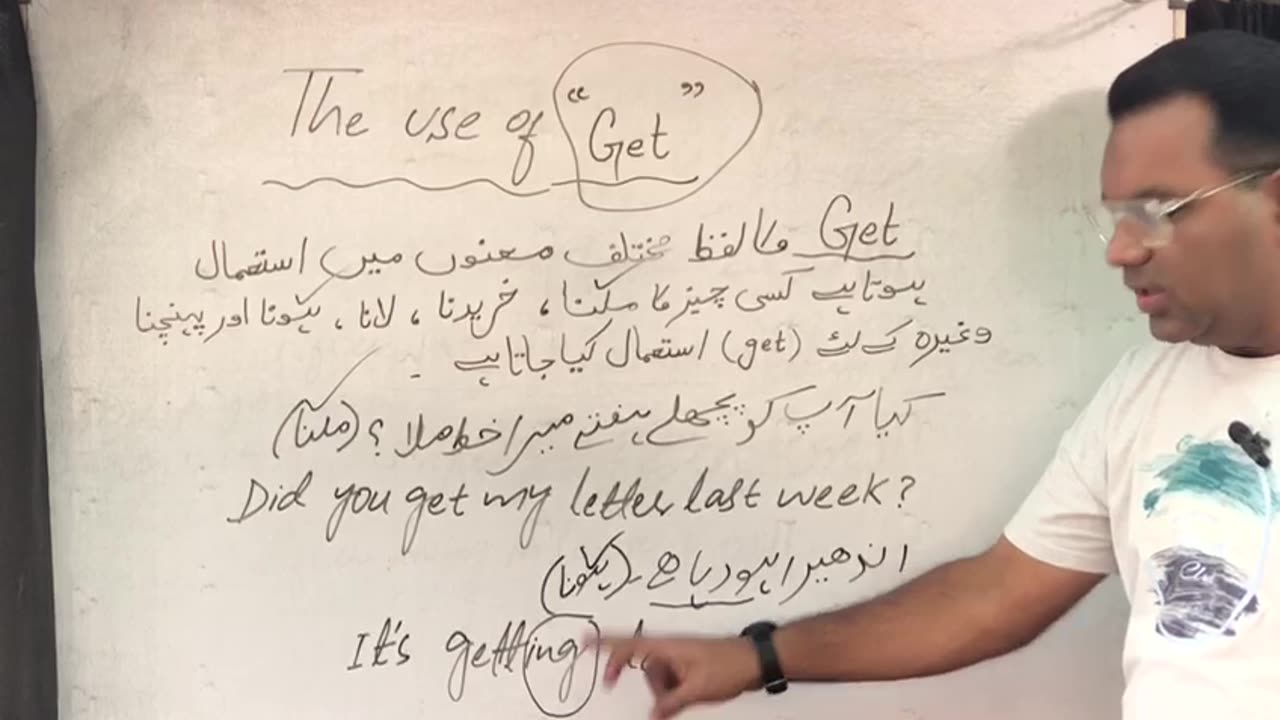 The use of “Get”
Get کا لفظ مختلف معنوں میں استعمال
ہوتا ہے کسی چیز کا ملنا، خریدنا، لانا، ہونا اور پہنچنا
وغیرہ کے لئے (get) استعمال کیا جاتا ہے۔
کیا آپ کو پچھلے ہفتے میرا خط ملا؟ (ملنا)
Did you get my letter last week?
اندھیرا ہو رہا ہے۔ (ہونا)
It's getting